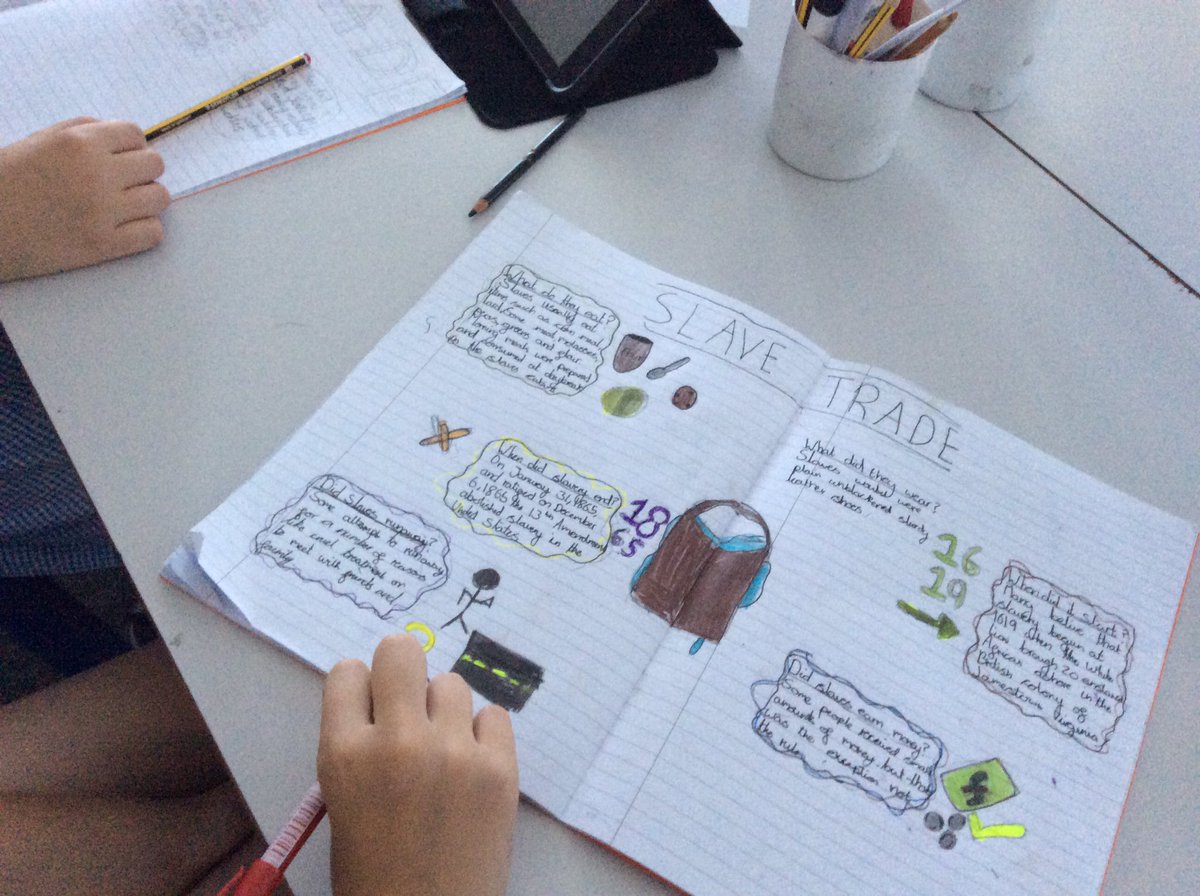 SLAVE TRADE
What do they eat?
Slaves usually eat
such as corn meal
lard, some meat, molasses,
peas, greens and flour
meals were prepared
and consumed at daybreak
to the slaves
When did slavery end?
On January 31, 1865,
and ratified on December
6, 1865 the 13th Amendment
abolished slavery in the
United States
18
65
Did slaves runaway?
Some attempt to runaway
for a number of reasons
the cruel treatment or
to meet with friends and
family
What did they wear?
Slaves
plain unblackened sturdy
leather shoes
16
19
When did it start?
Many belive that
slavery begun at
1619 when the white
lion brough 20 enslaved
African ashore in the
British colony of
Jamestown Virginia
Did slaves earn money?
Some people received small
amounts of money but that
was the exception not
the rules